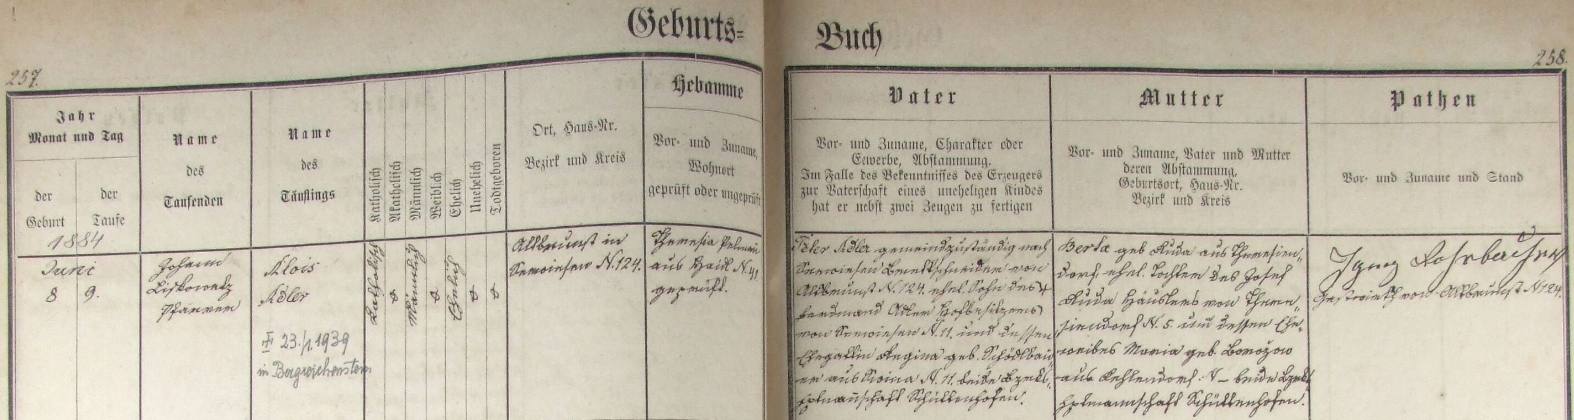 Geburts=
Buch
257.
258.
Jahr
Monat und Tag
der
Geburt
der
Taufe
Name
des
Taufenden
Name
des
Täuflings
Katholisch
Akatholisch
Männlich
Weiblich
Ehelich
Unehelich
Todtgeboren
Ort, Haus-Nr.
Bezirk und Kreis
Hebamme
Vor- und Zuname,
Wohnort
geprüft oder ungeprüft
Vater
Vor- und Zuname, Charakter oder
Erwerbe, Abstammung.
Im Falle des Bekenntnisses des Erzeugers
zur Vaterschaft eines unehelichen Kindes
hat er nebst zwei Zeugen zu fertigen
Mutter
Vor- und Zuname, Vater und Mutter
deren Abstammung,
Geburtsort, Haus-Nr.
Bezirk und Kreis
Pathen
Vor- und Zuname und Stand
1884
Juni
8 9.
Johann
Liskowetz
Pfarrer
Alois
Adler
23./1. 1939
in Bergreichenstein
Katholisch
Männlich
Ehelich
Altbrunst in
Seewiesen N. 124.
Theresia
aus Haidl N. 41
geprüft.
Adler gemeindezuständig nach
Seewiesen Brettschneider von
Altbrunst N. 124. ehel. Sohn des
Ferdinand Adler Hofbesitzers
von Seewiesen N. 11. und dessen
Ehegattin Regina geb.
aus N. 11. beide Bezirks-
hptmannschaft Schüttenhofen.
Berta geb. Kuda aus Theresien-
dorf ehel. Tochter des Josef
Kuda Häuslers von There-
siendorf N. 5. und dessen Ehe-
weibes Maria geb.
aus beide Bezirks
hptmannschaft Schüttenhofen.
Ignaz
Gastwirth von Altbrunst N. 124.